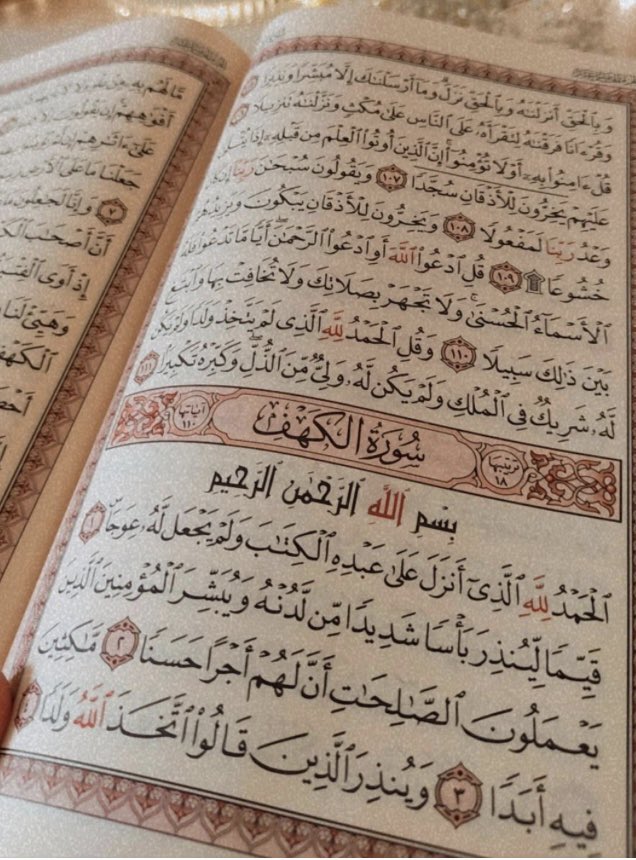 وَبِٱلۡحَقِّ أَنزَلۡنَٰهُ وَبِٱلۡحَقِّ نَزَلَۗ وَمَآ أَرۡسَلۡنَٰكَ إِلَّا مُبَشِّرٗا وَنَذِيرٗا
وَقُرۡءَانٗا فَرَقۡنَٰهُ لِتَقۡرَأَهُۥ عَلَى ٱلنَّاسِ عَلَىٰ مُكۡثٖ وَنَزَّلۡنَٰهُ تَنزِيلٗا
قُلۡ ءَامِنُواْ بِهِۦٓ أَوۡ لَا تُؤۡمِنُوٓاْۚ إِنَّ ٱلَّذِينَ أُوتُواْ ٱلۡعِلۡمَ مِن قَبۡلِهِۦٓ إِذَا يُتۡلَىٰ
عَلَيۡهِمۡ يَخِرُّونَۤ لِلۡأَذۡقَانِۤ سُجَّدٗاۤ ١٠٧ وَيَقُولُونَ سُبۡحَٰنَ رَبِّنَآ إِن كَانَ
وَعۡدُ رَبِّنَا لَمَفۡعُولٗا ١٠٨ وَيَخِرُّونَ لِلۡأَذۡقَانِ يَبۡكُونَ وَيَزِيدُهُمۡ
خُشُوعٗا ۩ ١٠٩ قُلِ ٱدۡعُواْ ٱللَّهَ أَوِ ٱدۡعُواْ ٱلرَّحۡمَٰنَۖ أَيّٗا مَّا تَدۡعُواْ فَلَهُ
ٱلۡأَسۡمَآءُ ٱلۡحُسۡنَىٰۚ وَلَا تَجۡهَرۡ بِصَلَاتِكَ وَلَا تُخَافِتۡ بِهَا وَٱبۡتَغِ
بَيۡنَ ذَٰلِكَ سَبِيلٗا ١١٠ وَقُلِ ٱلۡحَمۡدُ لِلَّهِ ٱلَّذِي لَمۡ يَتَّخِذۡ وَلَدٗا وَلَمۡ يَكُن
لَّهُۥ شَرِيكٞ فِي ٱلۡمُلۡكِ وَلَمۡ يَكُن لَّهُۥ وَلِيّٞ مِّنَ ٱلذُّلِّۖ وَكَبِّرۡهُ تَكۡبِيرَۢا ١١١
ترتيبها ١٨ سُورَةُ الكَهۡفِ آياتها ١١٠
بِسۡمِ ٱللَّهِ ٱلرَّحۡمَٰنِ ٱلرَّحِيمِ
ٱلۡحَمۡدُ لِلَّهِ ٱلَّذِيٓ أَنزَلَ عَلَىٰ عَبۡدِهِ ٱلۡكِتَٰبَ وَلَمۡ يَجۡعَل لَّهُۥ عِوَجَاۜ ١
قَيِّمٗا لِّيُنذِرَ بَأۡسٗا شَدِيدٗا مِّن لَّدُنۡهُ وَيُبَشِّرَ ٱلۡمُؤۡمِنِينَ ٱلَّذِينَ
يَعۡمَلُونَ ٱلصَّٰلِحَٰتِ أَنَّ لَهُمۡ أَجۡرًا حَسَنٗا ٢ مَّٰكِثِينَ
فِيهِ أَبَدٗا ٣ وَيُنذِرَ ٱلَّذِينَ قَالُواْ ٱتَّخَذَ ٱللَّهُ وَلَدٗا ٤
مَّا لَهُم بِهِۦ مِنۡ عِلۡمٖ وَلَا
أَفۡوَٰهِهِمۡۚ إِن يَقُولُونَ
عَلَىٰٓ ءَاثَٰرِهِمۡ إِن لَّمۡ
جَعَلۡنَا مَا عَلَى ٱلۡأَرۡضِ
٧ وَإِنَّا لَجَٰعِلُونَ مَا
أَنَّ أَصۡحَٰبَ
إِذۡ أَوَى
وَهَيِّئۡ لَنَا
ٱلۡكَهۡفِ